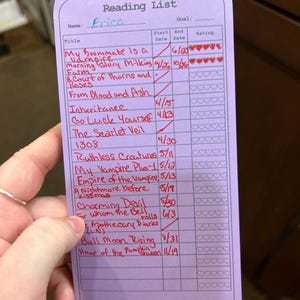 Reading List
Name: Erica Goal:
Title Start Date End Date Rating
My Roommate is a Vampire 6/23
Morning Glory Milking Farm
A Court of Thorns and Roses
From Blood and Ash
Inheritance 4/15
Go Luck Yourself 4/23
The Scarlet Veil
1308 4/30
Ruthless Creatures 5/11
My Vampire Plus-1 5/12
Empire of the Vampire 5/13
A Nightmare before Kissmas 5/19
Charming Devil 5/30
For whom the Belle tolls 6/3
The Apothecary Diaries
Full Moon Rising
Hour of the Pumpkin Queen 11/19